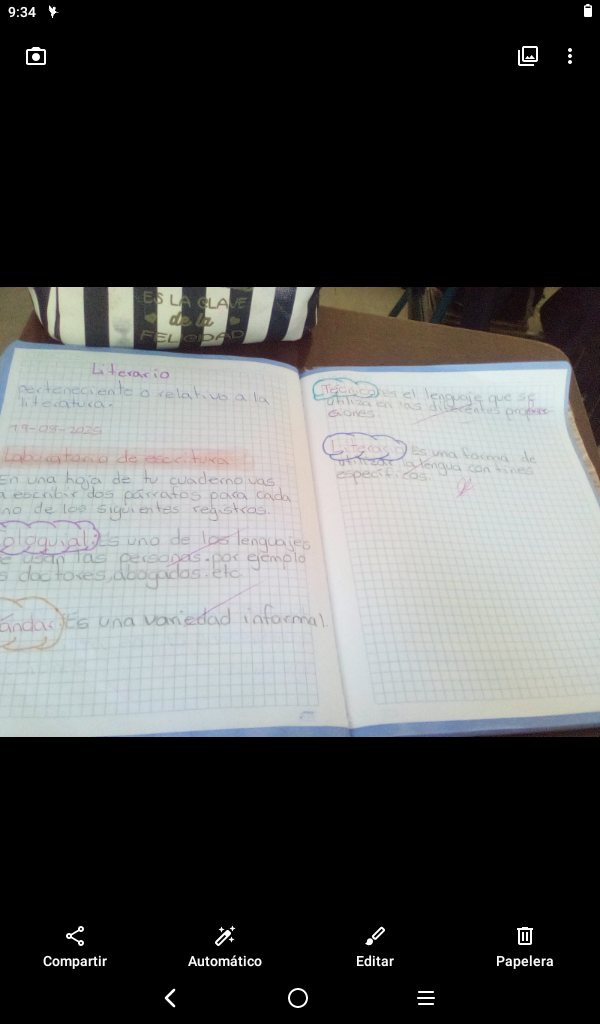 9:34
ES LA CLAVE
de la
FELICIDAD
Literario
perteneciente o relativo a la
literatura.
19-09-2025
Laboratorio de escritura
En una hoja de tu cuaderno vas
a escribir dos párrafos para cada
no de los siguientes registros.
oloquial: Es uno de los lenguajes
e usan las personas por ejemplo
s doctores, abogados. etc
andar: Es una variedad informal.
Técnico es el lenguaje que se
utiliza en las diferentes profe
ciones.
Literario Es una forma de
utilizar la lengua con fines
específicos.
Compartir
Automático
Editar
Papelera